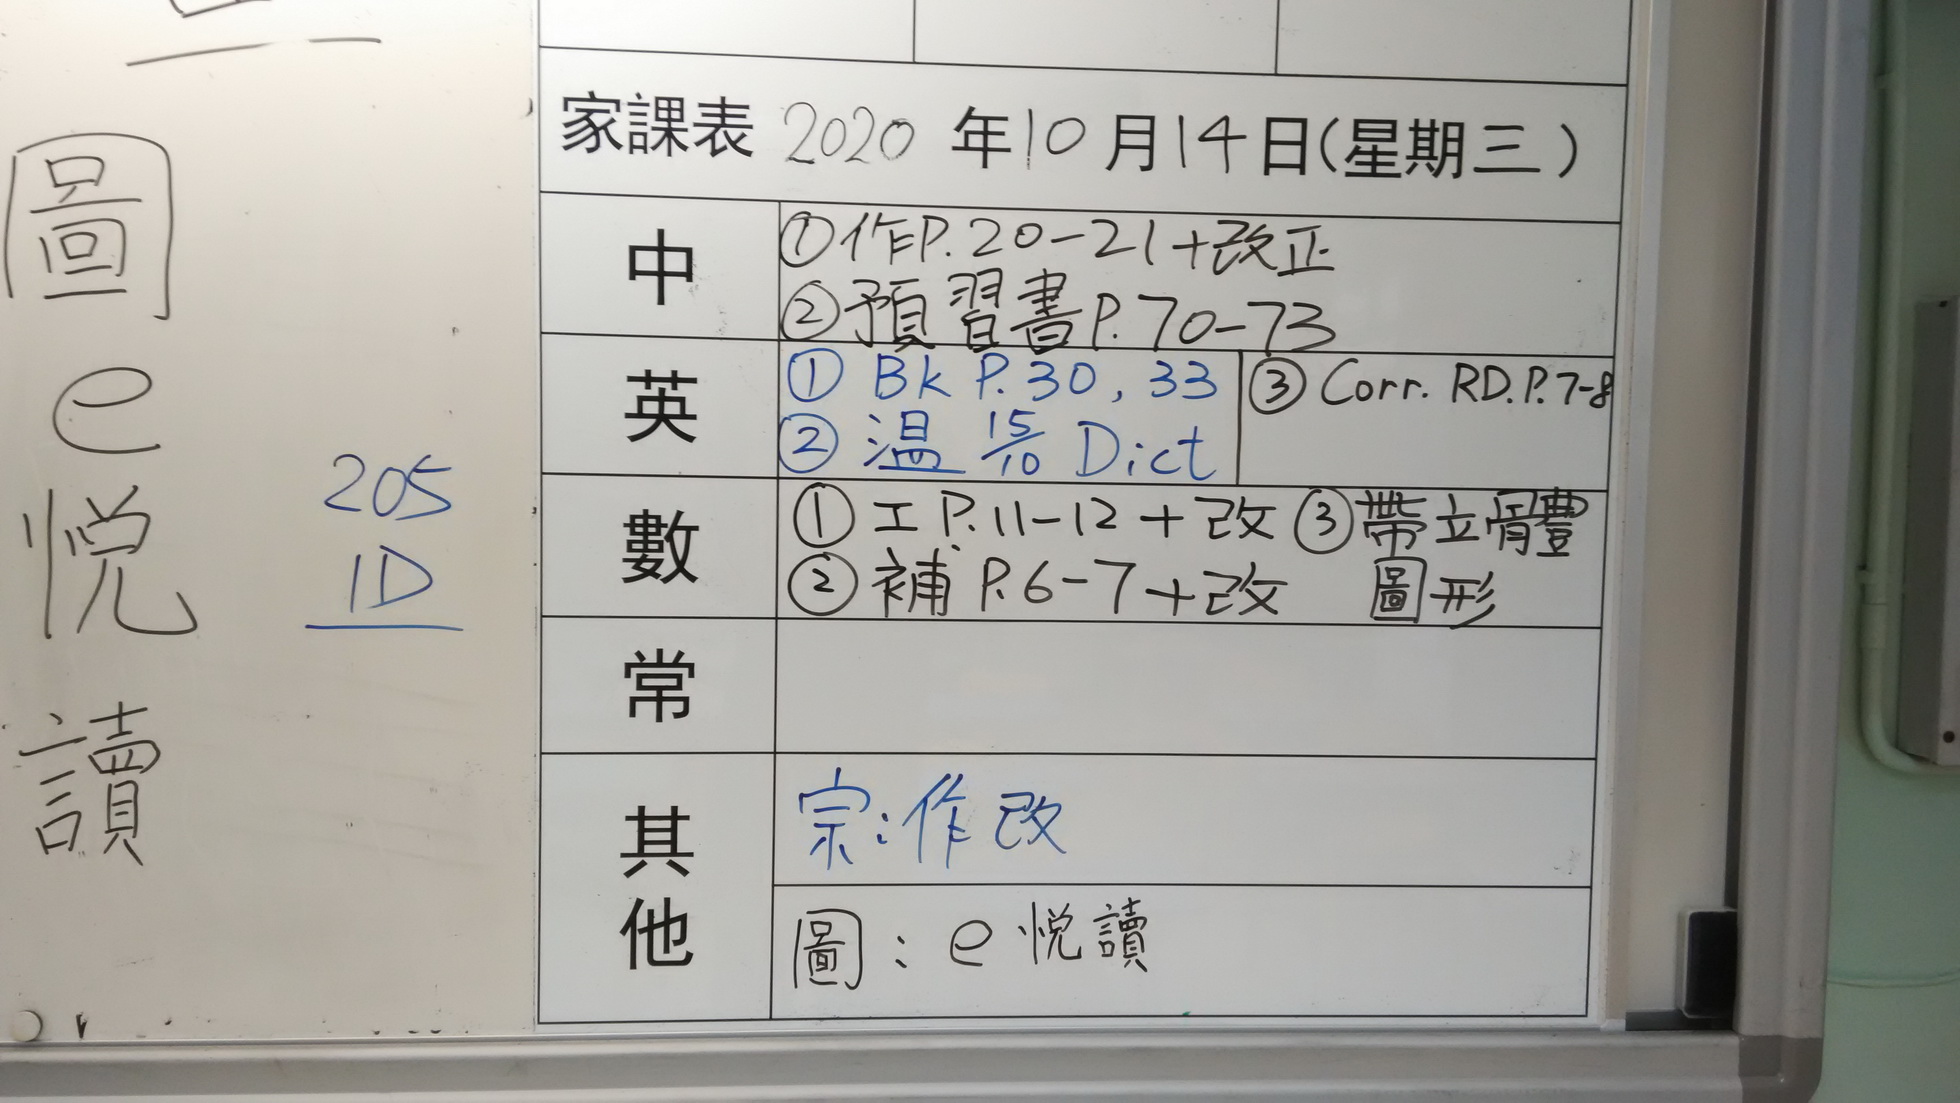 圖
e
悅
讀
205
1D
家課表 2020 年10月14日(星期三)
中
①作P.20-21+改正
②預習書P.70-73
英
① Bk P.30, 33
② 温 15/10 Dict
③ Corr. RD.P.7-8
數
① 工 P.11-12 + 改 ③帶立體
② 補 P.6-7 +改 圖形
常
其他
宗:作改
圖:e悅讀